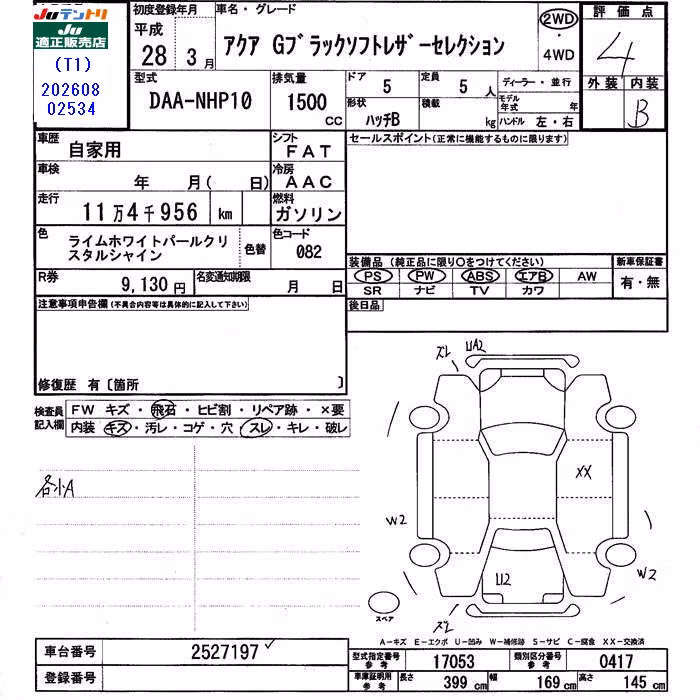 Juテントリ
Ju
適正販売店
(T1)
202608
02534
初度登録年月
平成
28 3月
車名・グレード
アクア Gブラックソフトレザーセレクション
2WD
・
4WD
評価点
4
外装 内装
B
型式
DAA-NHP10
排気量
1500
cc
ドア
5
定員
5 人
形状
ハッチB
積載
kg
ディーラー・並行
モデル年式 年
ハンドル 左・右
車歴
自家用
シフト
FAT
車検
年 月( 日)
冷房
AAC
走行
11万4千956 km
燃料
ガソリン
色
ライムホワイトパールクリ
スタルシャイン
色替
色コード
082
R券
9,130 円
名変通知期限
月 日
セールスポイント(正常に機能するものに限ります)
装備品(純正品に限り○をつけてください)
PS PW ABS エアB AW
SR ナビ TV カワ
新車保証書
有・無
後日品
注意事項申告欄(不具合内容等は具体的に記入して下さい)
修復歴 有〔箇所 〕
検査員
記入欄
FW キズ・飛石・ヒビ割・リペア跡・×要
内装 キズ・汚レ・コゲ・穴・スレ・キレ・破レ
各小A
スレ
UA2
XX
W2
W2
U2
スレ
スペア
A−キズ E−エクボ U−凹み W−補修跡 S−サビ C−腐食 XX−交換済
車台番号
2527197
登録番号
型式指定番号
参考
17053
類別区分番号
参考
0417
車庫証明用
参考
長さ
399 cm
幅
169 cm
高さ
145 cm